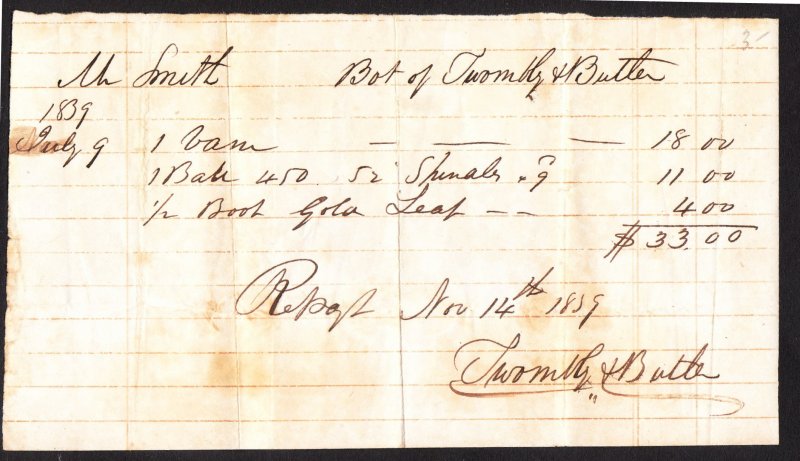 3-
Mr Smith Bot of Twombly & Butler
1839
July 9 1 Vam — — — 18 00
1 Bale 450 52 9 11 00
1/2 Book Gold Leaf - - 4 00
$ 33.00
Nov 14th 1839
Twombly & Butler